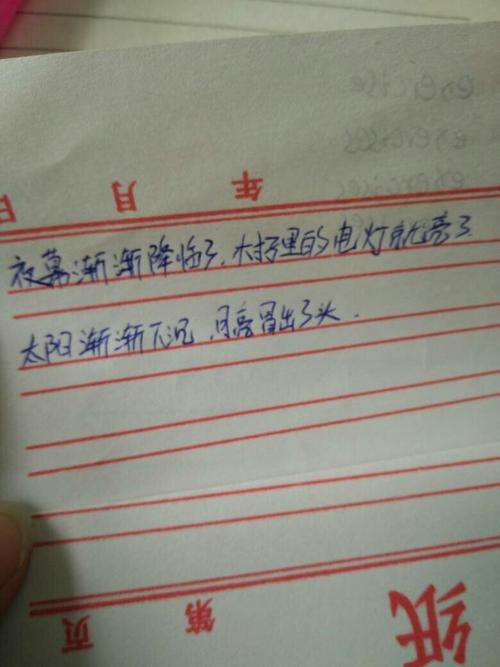 exercise
exercises
exercises
年 月 日
夜幕渐渐降临了,里的电灯就亮了
太阳渐渐下沉,月亮冒出了头.
第 页
纸